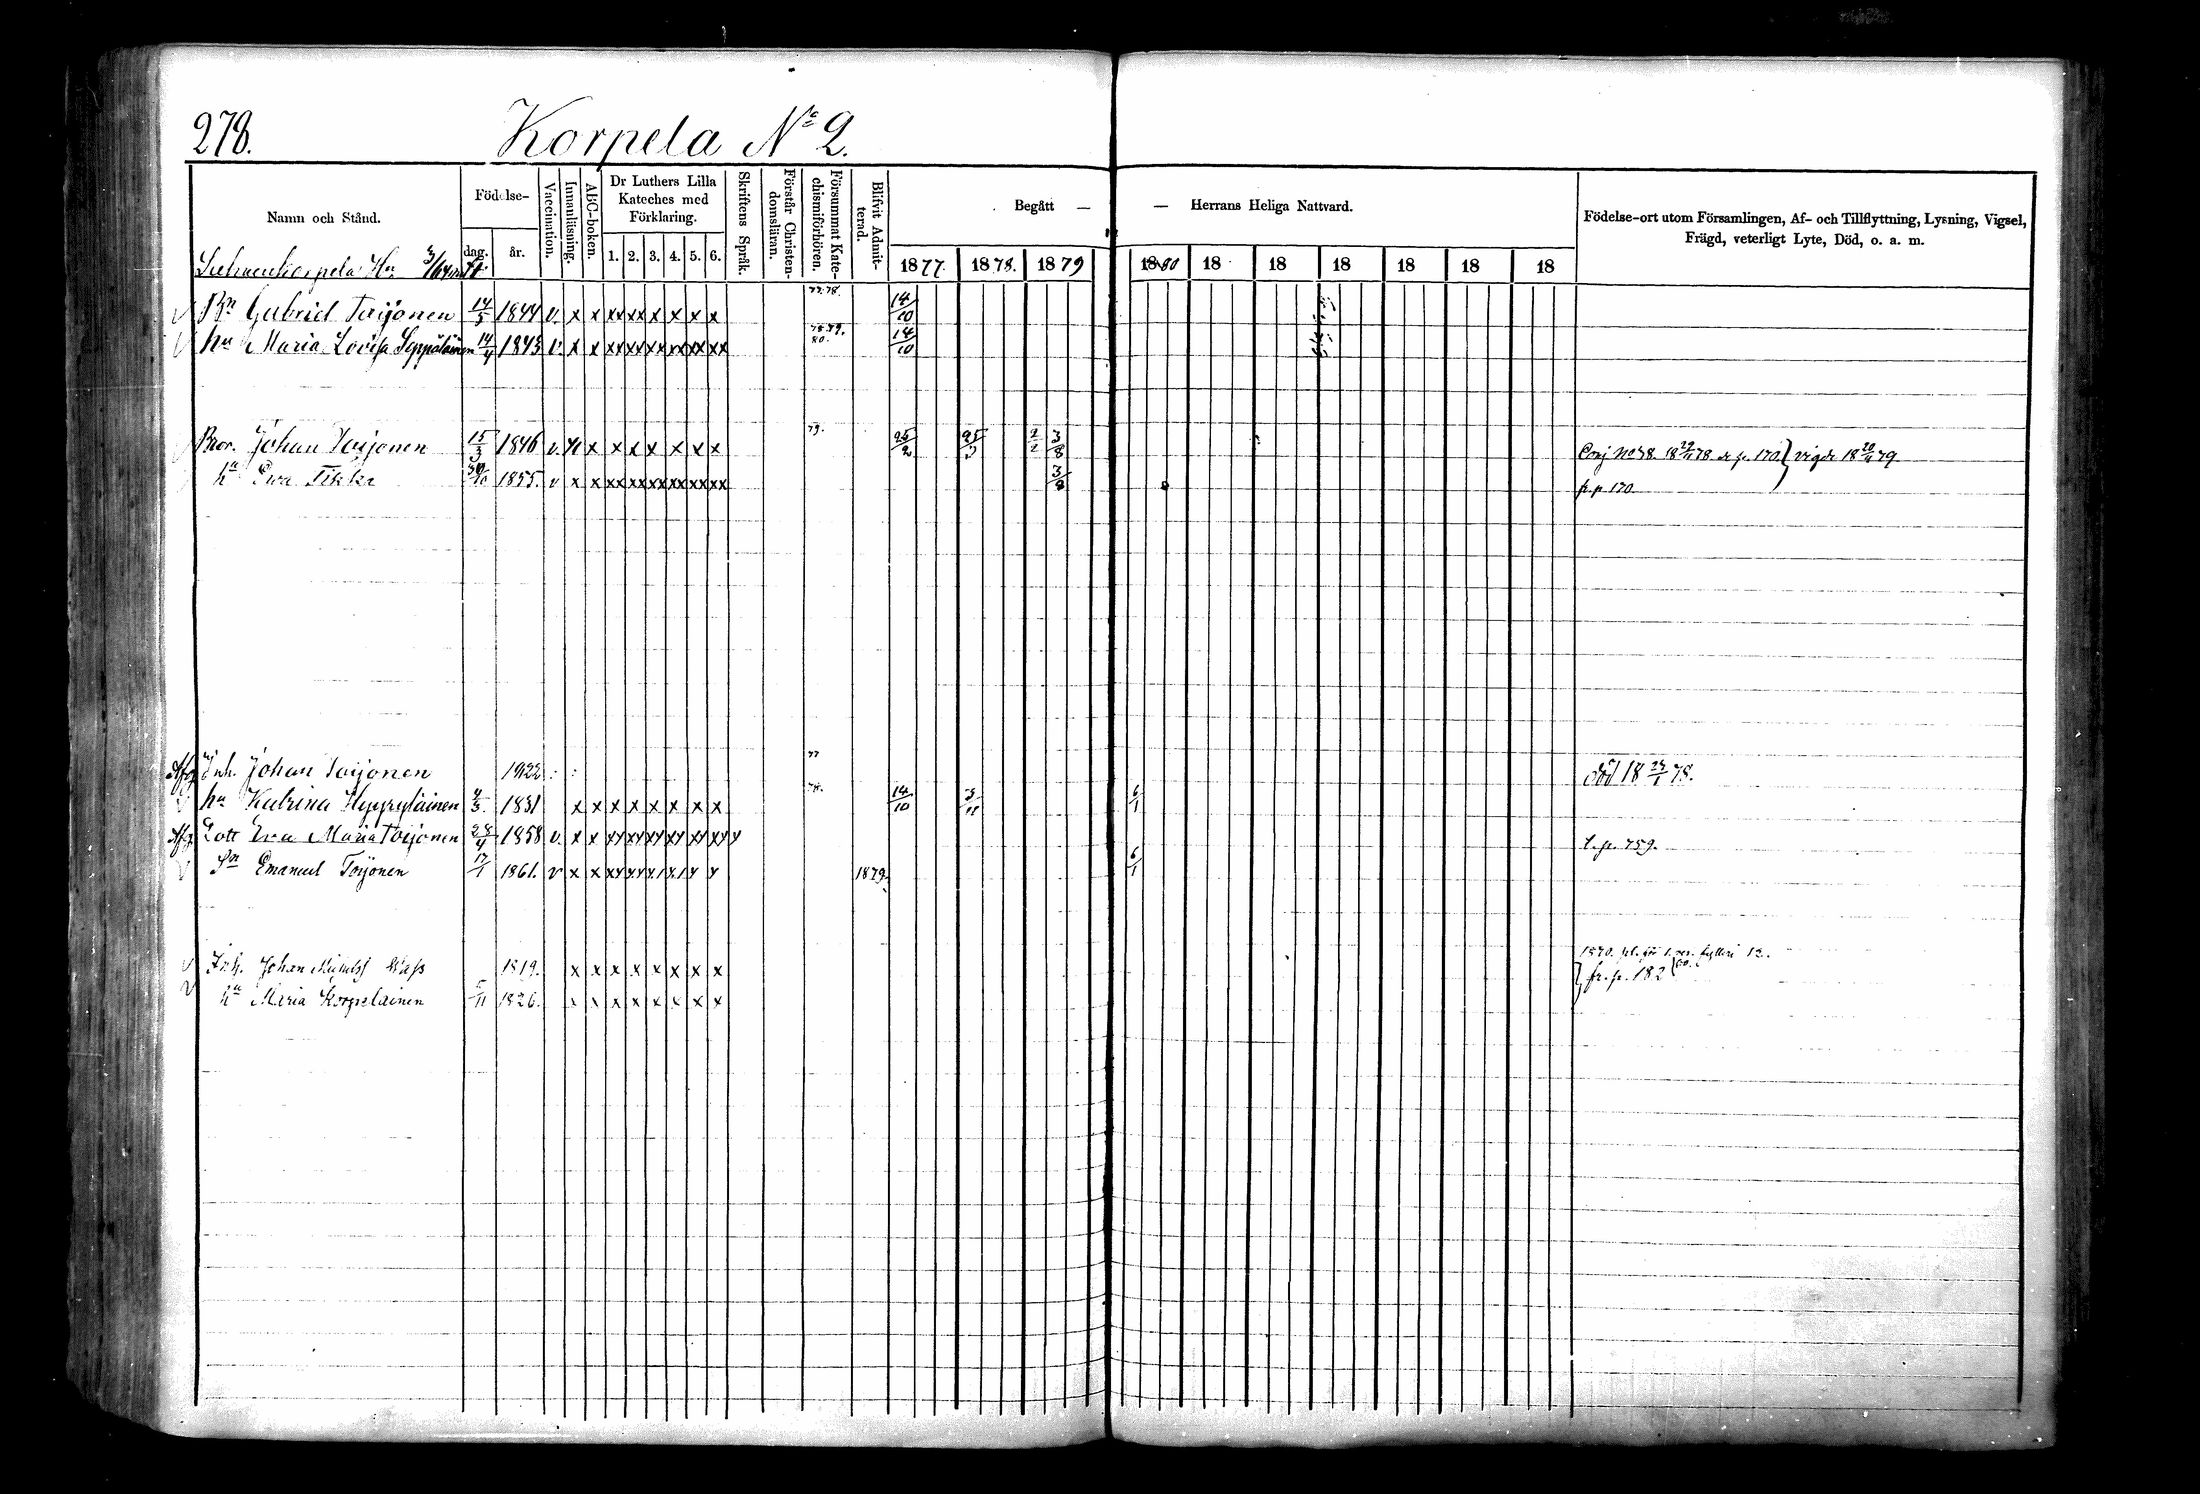 278. Korpela No 2.
Namn och Stånd. Födelse- dag. år. Vaccination. Innanläsning. ABC-boken. Dr Luthers Lilla Kateches med Förklaring. 1. 2. 3. 4. 5. 6. Skriftens Språk. Förstår Christendomsläran. Försummat Katechismiförhören. Blifvit Admitterad. Begått — — Herrans Heliga Nattvard. Födelse-ort utom Församlingen, Af- och Tillflyttning, Lysning, Vigsel, Frägd, veterligt Lyte, Död, o. a. m.
1877. 1878. 1879 1880 18 18 18 18 18 18
Bn Gabriel Toijonen 14/5 1844 v. x x xx xx x x x x 77.78. 14/10
hu Maria Lovisa Seppäläinen 14/4 1843 v. x x xx xx xx xx xx xx 78.79. 80. 14/10
Bror. Johan Toijonen 15/3 1846 v. x x x x x x x 79. 25/2 25/3 2/2 3/8 18 29/11 78 p. 170. vigde 18 79
hu Eva Tikka 1855. v x x xx xx xx xx xx xx 3/8 fr. p. 170
Afg Inh. Johan Toijonen 1822 77 död 18 78.
hu Katrina Hyyryläinen 1831 x x x x x x x x 78. 14/10 3/11 6/1
Afg Dott Eva Maria Toijonen 28/4 1858 v. x x t. p. 759.
Sn Emanuel Toijonen 17/1 1861. v x x 1879. 6/1
Inh. Johan 1819. x x x x x x x x 12.
fr. p. 182
hu Maria Korpelainen 5/11 1826. x x x x x x x x